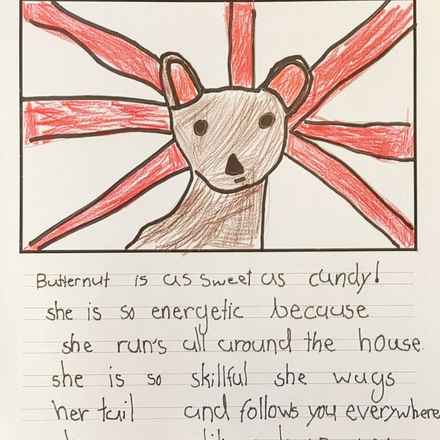 Butternut is as sweet as candy!
she is so energetic because
she runs all around the house.
she is so skillful she wags
her tail and follows you everywhere